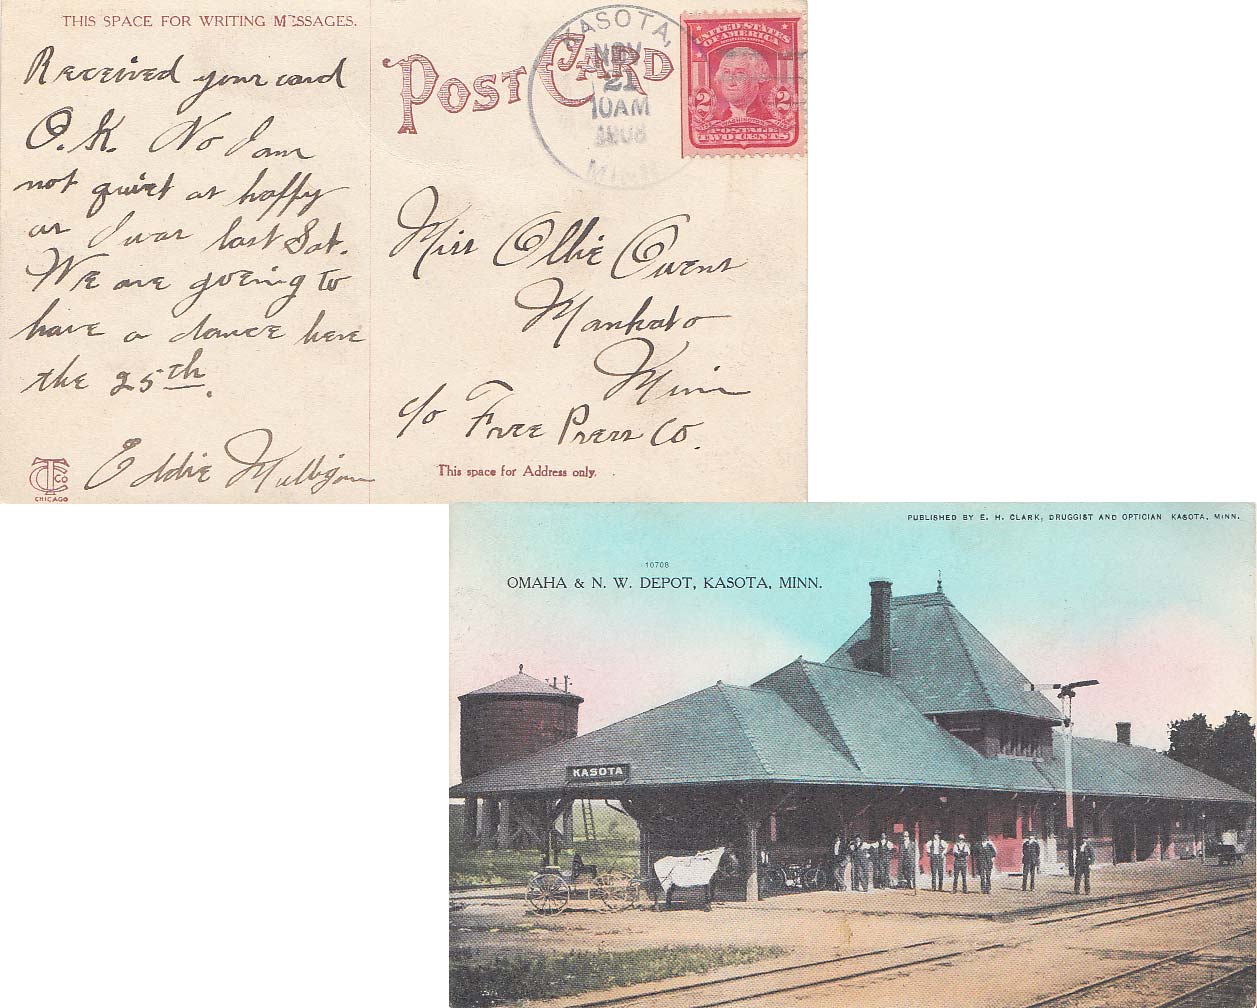 THIS SPACE FOR WRITING MESSAGES.
Received your card
O.K. No I am
not quiet as happy
as I was last Sat.
We are going to
have a dance here
the 25th.
Eddie Mulligan
TCCO
CHICAGO
POST CARD
KASOTA,
NOV
21
10AM
1908
MINN
UNITED STATES
OF AMERICA
2 2
WASHINGTON
POSTAGE
TWO CENTS
Miss Ollie Owens
Mankato
Minn
c/o Free Press Co.
This space for Address only.
PUBLISHED BY E. H. CLARK, DRUGGIST AND OPTICIAN KASOTA, MINN.
10708
OMAHA & N. W. DEPOT, KASOTA, MINN.
KASOTA